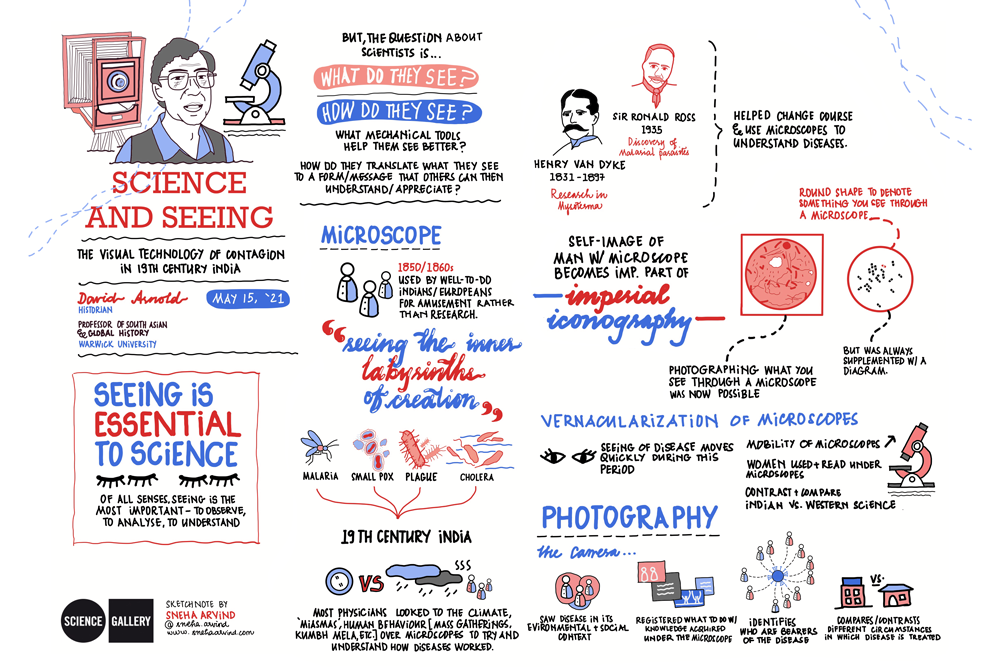 SCIENCE
AND SEEING
THE VISUAL TECHNOLOGY OF CONTAGION
IN 19TH CENTURY INDIA
David Arnold
MAY 15, '21
HISTORIAN
PROFESSOR OF SOUTH ASIAN
& GLOBAL HISTORY
WARWICK UNIVERSITY
SEEING IS
ESSENTIAL
TO SCIENCE
OF ALL SENSES, SEEING IS THE
MOST IMPORTANT - TO OBSERVE,
TO ANALYSE, TO UNDERSTAND
SCIENCE
GALLERY
SKETCHNOTE BY
SNEHA ARVIND
@sneha.arvind
www.snehaarvind.com
BUT, THE QUESTION ABOUT
SCIENTISTS IS...
WHAT DO THEY SEE?
HOW DO THEY SEE?
WHAT MECHANICAL TOOLS
HELP THEM SEE BETTER?
HOW DO THEY TRANSLATE WHAT THEY SEE
TO A FORM/MESSAGE THAT OTHERS CAN THEN
UNDERSTAND/APPRECIATE?
MICROSCOPE
1850/1860s
USED BY WELL-TO-DO
INDIANS/EUROPEANS
FOR AMUSEMENT RATHER
THAN RESEARCH.
"seeing the inner
labyrinths
of creation"
MALARIA
SMALL POX
PLAGUE
CHOLERA
19TH CENTURY INDIA
VS
MOST PHYSICIANS LOOKED TO THE CLIMATE,
'MIASMAS', HUMAN BEHAVIOUR [MASS GATHERINGS,
KUMBH MELA, ETC.] OVER MICROSCOPES TO TRY AND
UNDERSTAND HOW DISEASES WORKED.
SIR RONALD ROSS
1935
Discovery of
Malarial parasites
HENRY VAN DYKE
1831-1897
Research in
Mycetoma
HELPED CHANGE COURSE
& USE MICROSCOPES TO
UNDERSTAND DISEASES.
SELF-IMAGE OF
MAN W/ MICROSCOPE
BECOMES IMP. PART OF
imperial
iconography
ROUND SHAPE TO DENOTE
SOMETHING YOU SEE THROUGH
A MICROSCOPE
PHOTOGRAPHING WHAT YOU
SEE THROUGH A MICROSCOPE
WAS NOW POSSIBLE
BUT WAS ALWAYS
SUPPLEMENTED W/ A
DIAGRAM.
VERNACULARIZATION OF MICROSCOPES
SEEING OF DISEASE MOVES
QUICKLY DURING THIS
PERIOD
MOBILITY OF MICROSCOPES
WOMEN USED + READ UNDER
MICROSCOPES
CONTRAST + COMPARE
INDIAN VS. WESTERN SCIENCE
PHOTOGRAPHY
the camera...
SAW DISEASE IN ITS
EVIRONMENTAL + SOCIAL
CONTEXT
REGISTERED WHAT TO DO W/
KNOWLEDGE ACQUIRED
UNDER THE MICROSCOPE
IDENTIFIES
WHO ARE BEARERS
OF THE DISEASE
VS.
COMPARES/CONTRASTS
DIFFERENT CIRCUMSTANCES
IN WHICH DISEASE IS TREATED